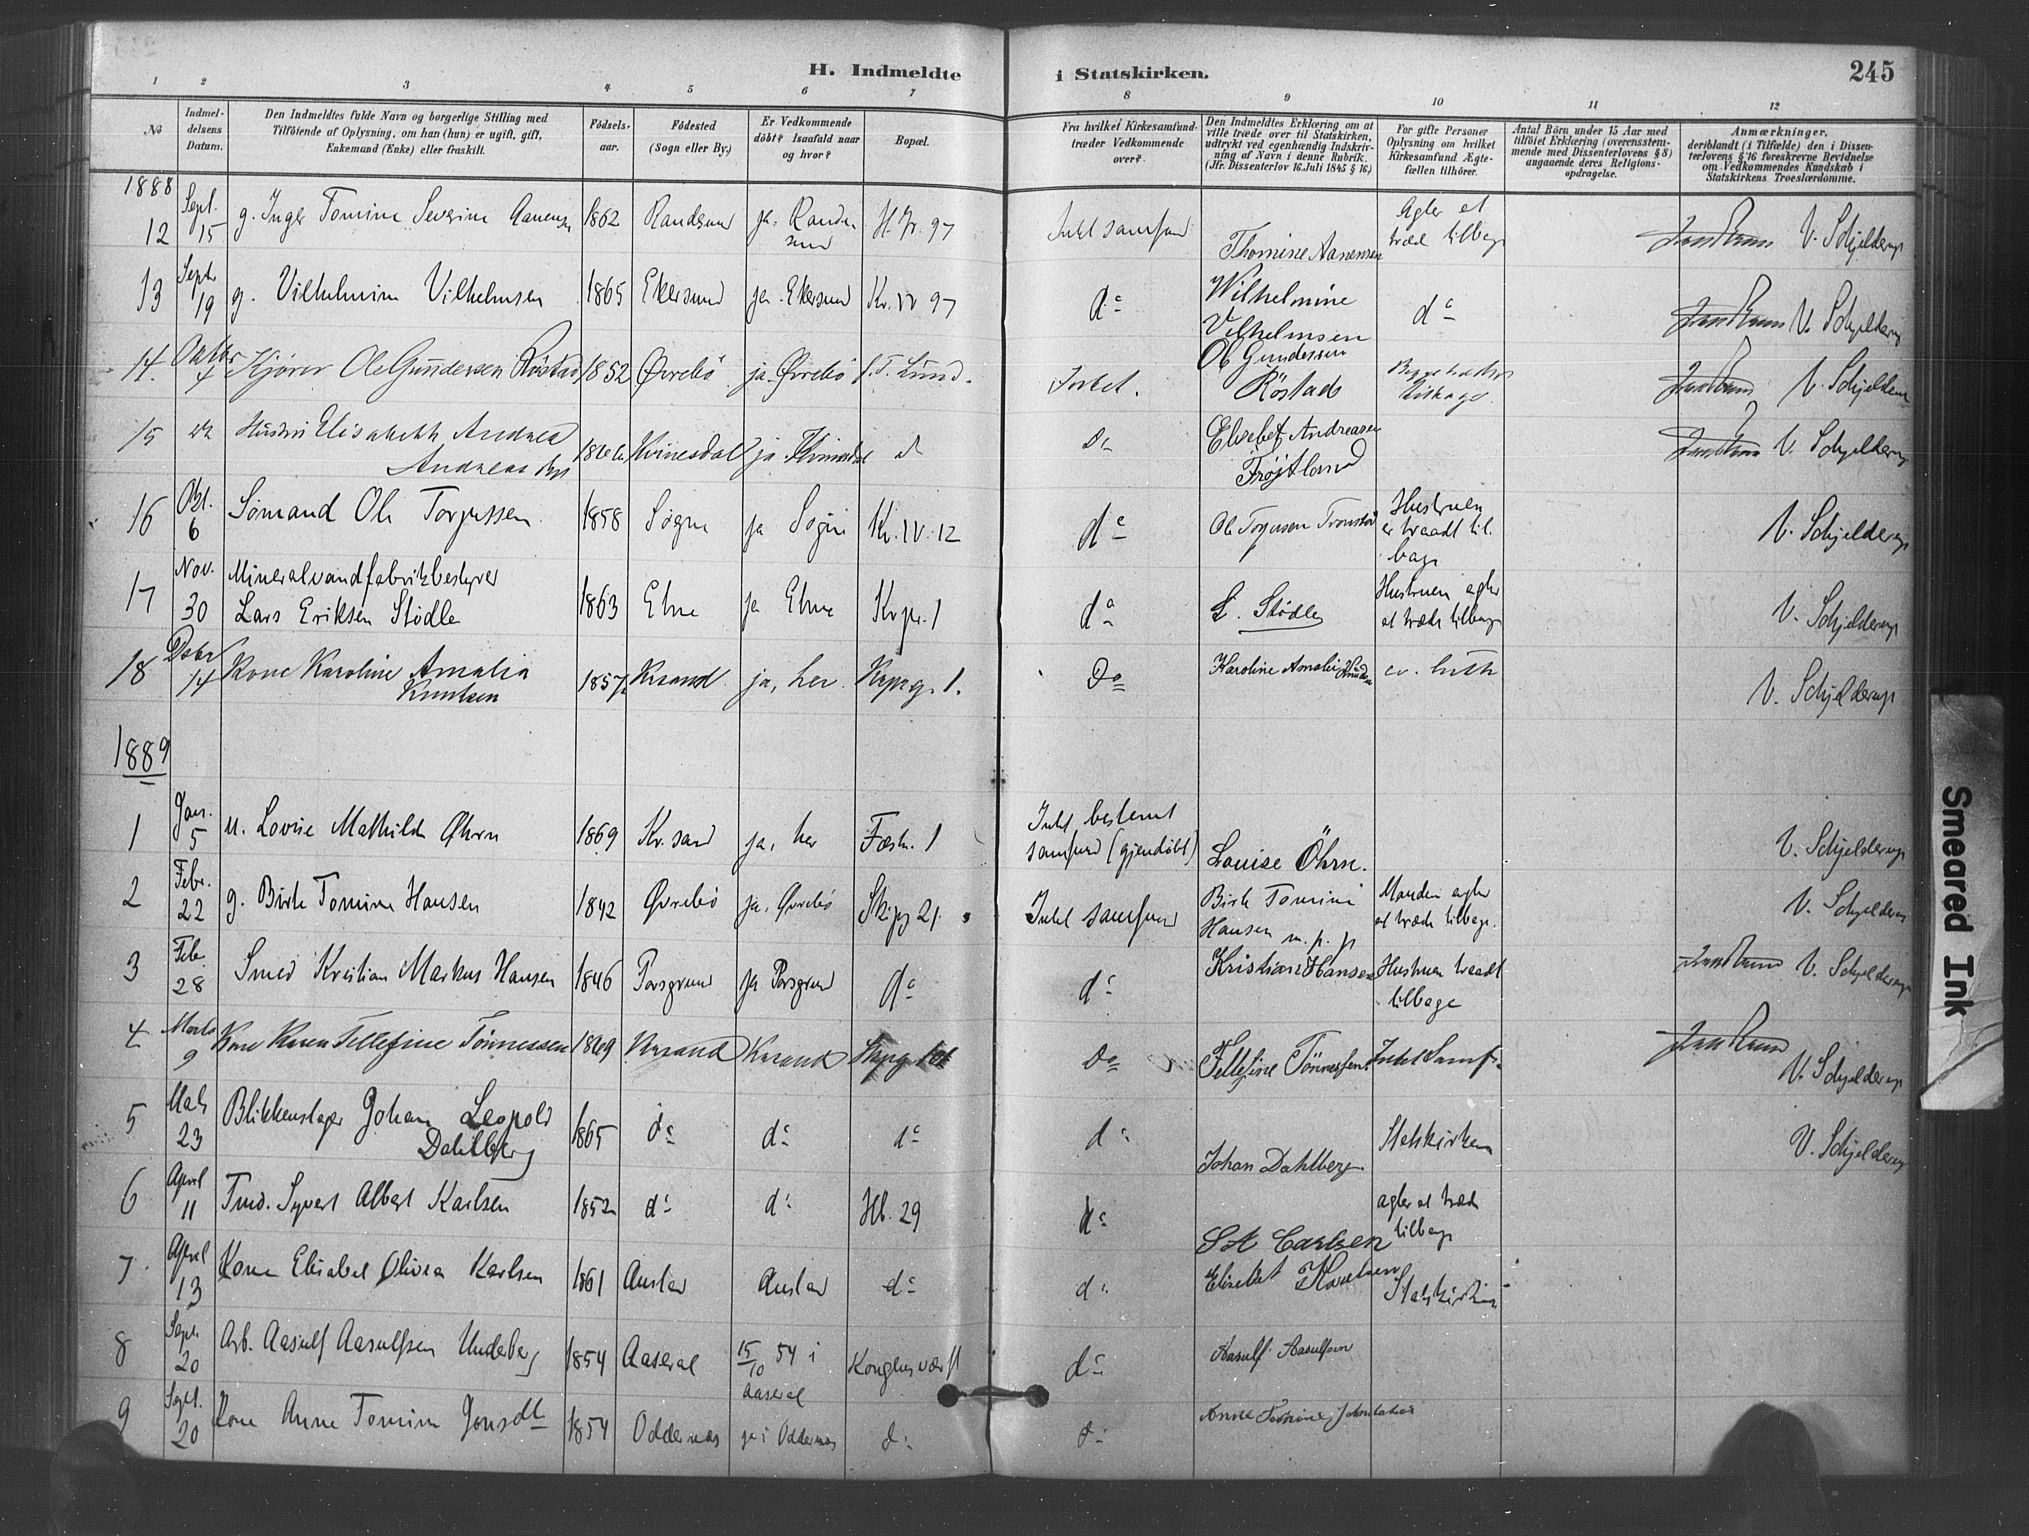 245
H. Indmeldte i Statskirken.
1 2 3 4 5 6 7 8 9 10 11 12
No
Indmel-
delsens
Datum.
Den Indmeldtes fulde Navn og borgerlige Stilling med
Tilföiende af Oplysning, om han (hun) er ugift, gift,
Enkemand (Enke) eller fraskilt.
Födsels-
aar.
Födested
(Sogn eller By.)
Er Vedkommende
döbt? Isaafald naar
og hvor?
Bopæl.
Fra hvilket Kirkesamfund-
træder Vedkommende
over?
Den Indmeldtes Erklæring om at
ville træde over til Statskirken,
udtrykt ved egenhændig Indskriv-
ning af Navn i denne Rubrik.
(Jfr. Dissenterlov 16. Juli 1845 § 16.)
For gifte Personer
Oplysning om hvilket
Kirkesamfund Ægte-
fællen tilhörer.
Antal Börn under 15 Aar med
tilföiet Erklæring (overensstem-
mende med Dissenterlovens § 8)
angaaende deres Religions-
opdragelse.
Anmærkninger,
deriblandt (i Tilfælde) den i Dissen-
terlovens § 16 foreskrevne Bevidnelse
om Vedkommendes Kundskab i
Statskirkens Troeslærdomme.
1888
12 Sept. 15 g. Inger Tomine Severine Aanensen 1862 Randesund ja. Rande-
sund Intet samfund Thomine Aanensen Agter at
træde tilbage V. Schjelderup
13 Septr 19 g. Vilhelmine Vilhelmsen 1865 Ekersund ja. Ekersund Kr. IV 97 do Wilhelmine
Vilhelmsen do V. Schjelderup
14. Octbr 4 Kjörer Ole Gundersen Röstad 1852 Øvrebö ja. Øvrebö Intet. Ole Gundersen
Röstad V. Schjelderup
15 Hustru Elisabeth Andrea
Andreas Kvinesdal ja do Elisebet Andreasen
Tröjtland V. Schjelderup
16 Okt. 6 Sømand Ole Torjussen 1858 Søgne ja Søgne Kr. IV. 12 do Ole Torjusen Hustruen
er traadt til-
bage V. Schjelderup
17 Nov. 30 Mineralvandfabrikbestyrer
Lars Eriksen Stødle 1863 Etne ja Etne do L. Stödle Hustruen agter
at træde tilbage V. Schjelderup
18 Decbr 14 Kone Karoline Amalia
Knutsen 1857 Krsand ja, her. Do Karoline Amalie Knudsen ev. luth V. Schjelderup
1889
1 Jan. 5 u. Lovise Mathilde Øhrn 1869 Kr.sand ja, her Fæstn. 1 Intet bestemt
samfund (gjendöbt) Louise Öhrn. V. Schjelderup
2 Febr. 22 g. Birte Tomine Hansen 1842 Øvrebö ja, Øvrebö Intet samfund Birte Tomine
Hansen m. p. p. Manden agter
at træde tilbage. V. Schjelderup
3 Febr. 28 Smed Kristian Markus Hansen 1846 Porsgrund ja Porsgrund do do Kristian Hansen Hustruen traadt
tilbage V. Schjelderup
4 Marts 9 Kone Karen Tellefine Tönnessen 1869 Krsand Krsand Do Tellefine Tönnessen Intet Samf. V. Schjelderup
5 Mats 23 Blikkenslager Johan Leopold
Dahlberg 1865 do do do do Johan Dahlberg Statskirken V. Schjelderup
6 April 11 Tmd. Syvert Albert Karlsen 1852 do do Hb. 29 do S A Carlsen agter at træde
tilbage
7 April 13 Kone Elisabet Olivia Karlsen 1861 do do Elisebet Karlsen Statskirken
8 Septr 20 Arb. Aasulf Aasulfsen Undeberg 1854 Aaseral 15/10 54 i
Aaseral do Aasulf Aasulfsen
9 Sept. 20 Kone Anne Tomine Jonsdt 1854 Oddernes ja i Oddernes do do
Smeared Ink